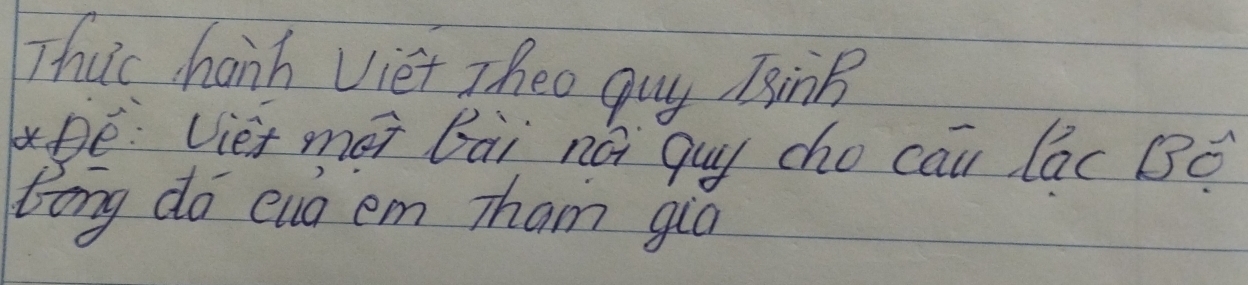 Thực hành Viết Theo quy Trình
*Đề: Viết một Bài nội quy cho câu lạc Bộ
bóng đá của em Tham gia